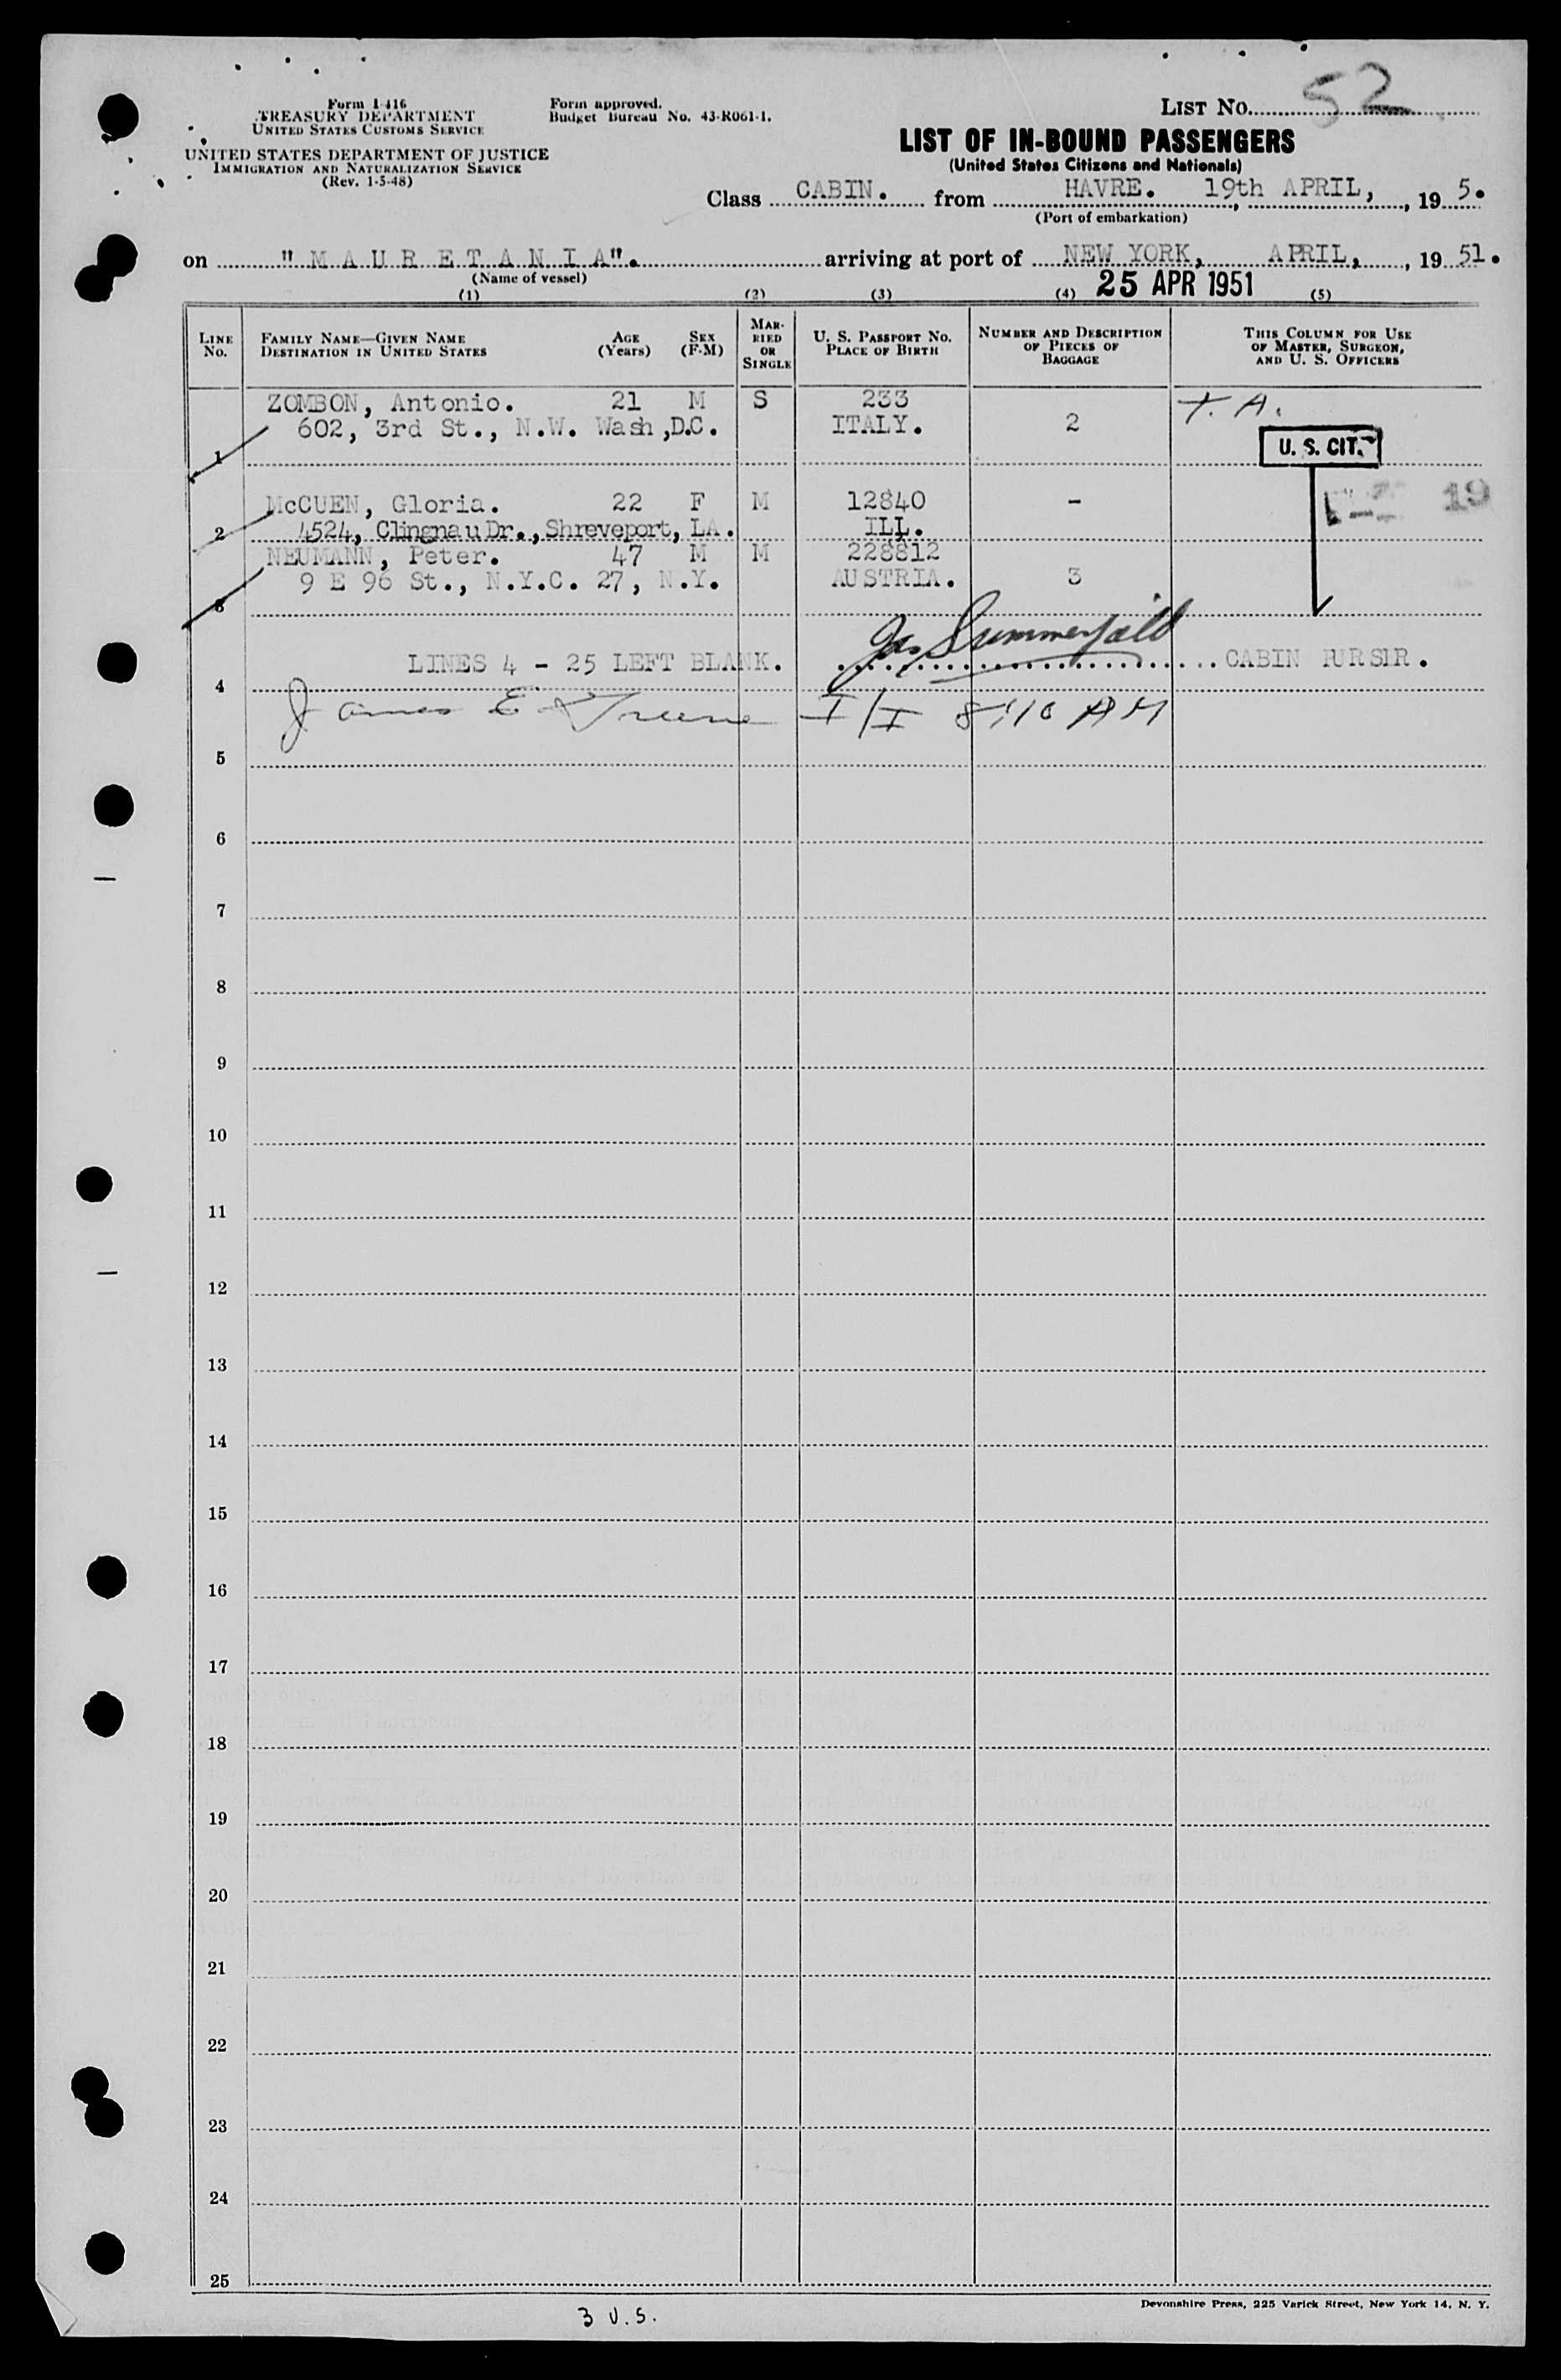 Form I-416
TREASURY DEPARTMENT
UNITED STATES CUSTOMS SERVICE
UNITED STATES DEPARTMENT OF JUSTICE
IMMIGRATION AND NATURALIZATION SERVICE
(Rev. 1-5-48)
Form approved.
Budget Bureau No. 43-R061-1.
LIST NO. 52
LIST OF IN-BOUND PASSENGERS
(United States Citizens and Nationals)
Class CABIN. from HAVRE. 19th APRIL, , 19 5.
(Port of embarkation)
on "MAURETANIA". arriving at port of NEW YORK, APRIL, , 19 51.
(Name of vessel)
25 APR 1951
(1) (2) (3) (4) (5)
LINE NO. FAMILY NAME—GIVEN NAME DESTINATION IN UNITED STATES AGE (Years) SEX (F-M) MARRIED OR SINGLE U. S. PASSPORT NO. PLACE OF BIRTH NUMBER AND DESCRIPTION OF PIECES OF BAGGAGE THIS COLUMN FOR USE OF MASTER, SURGEON, AND U. S. OFFICERS
ZOMBON, Antonio. 21 M S 233 T. A.
602, 3rd St., N.W. Wash,D.C. ITALY. 2
1 U. S. CIT.
McCUEN, Gloria. 22 F M 12840 - 19
2 4524, Clingnau Dr., Shreveport, LA. ILL.
NEUMANN, Peter. 47 M M 228812
9 E 96 St., N.Y.C. 27, N.Y. AUSTRIA. 3
3
LINES 4 - 25 LEFT BLANK. Jas Summerfield CABIN PURSER.
4
James E Greene I/I 8:10 AM
5
6
7
8
9
10
11
12
13
14
15
16
17
18
19
20
21
22
23
24
25
Devonshire Press, 225 Varick Street, New York 14, N. Y.
3 U.S.